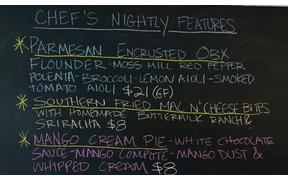 CHEF'S NIGHTLY FEATURES
PARMESAN ENCRUSTED OBX
FLOUNDER-MOSS MILL RED PEPPER
POLENTA-BROCCOLI-LEMON AIOLI-SMOKED
TOMATO AIOLI $21 (GF)
SOUTHERN FRIED MAC N' CHEESE BITES
WITH HOMEMADE BUTTERMILK RANCH &
SRIRACHA $8
MANGO CREAM PIE-WHITE CHOCOLATE
SAUCE-MANGO COMPOTE-MANGO DUST &
WHIPPED CREAM $8